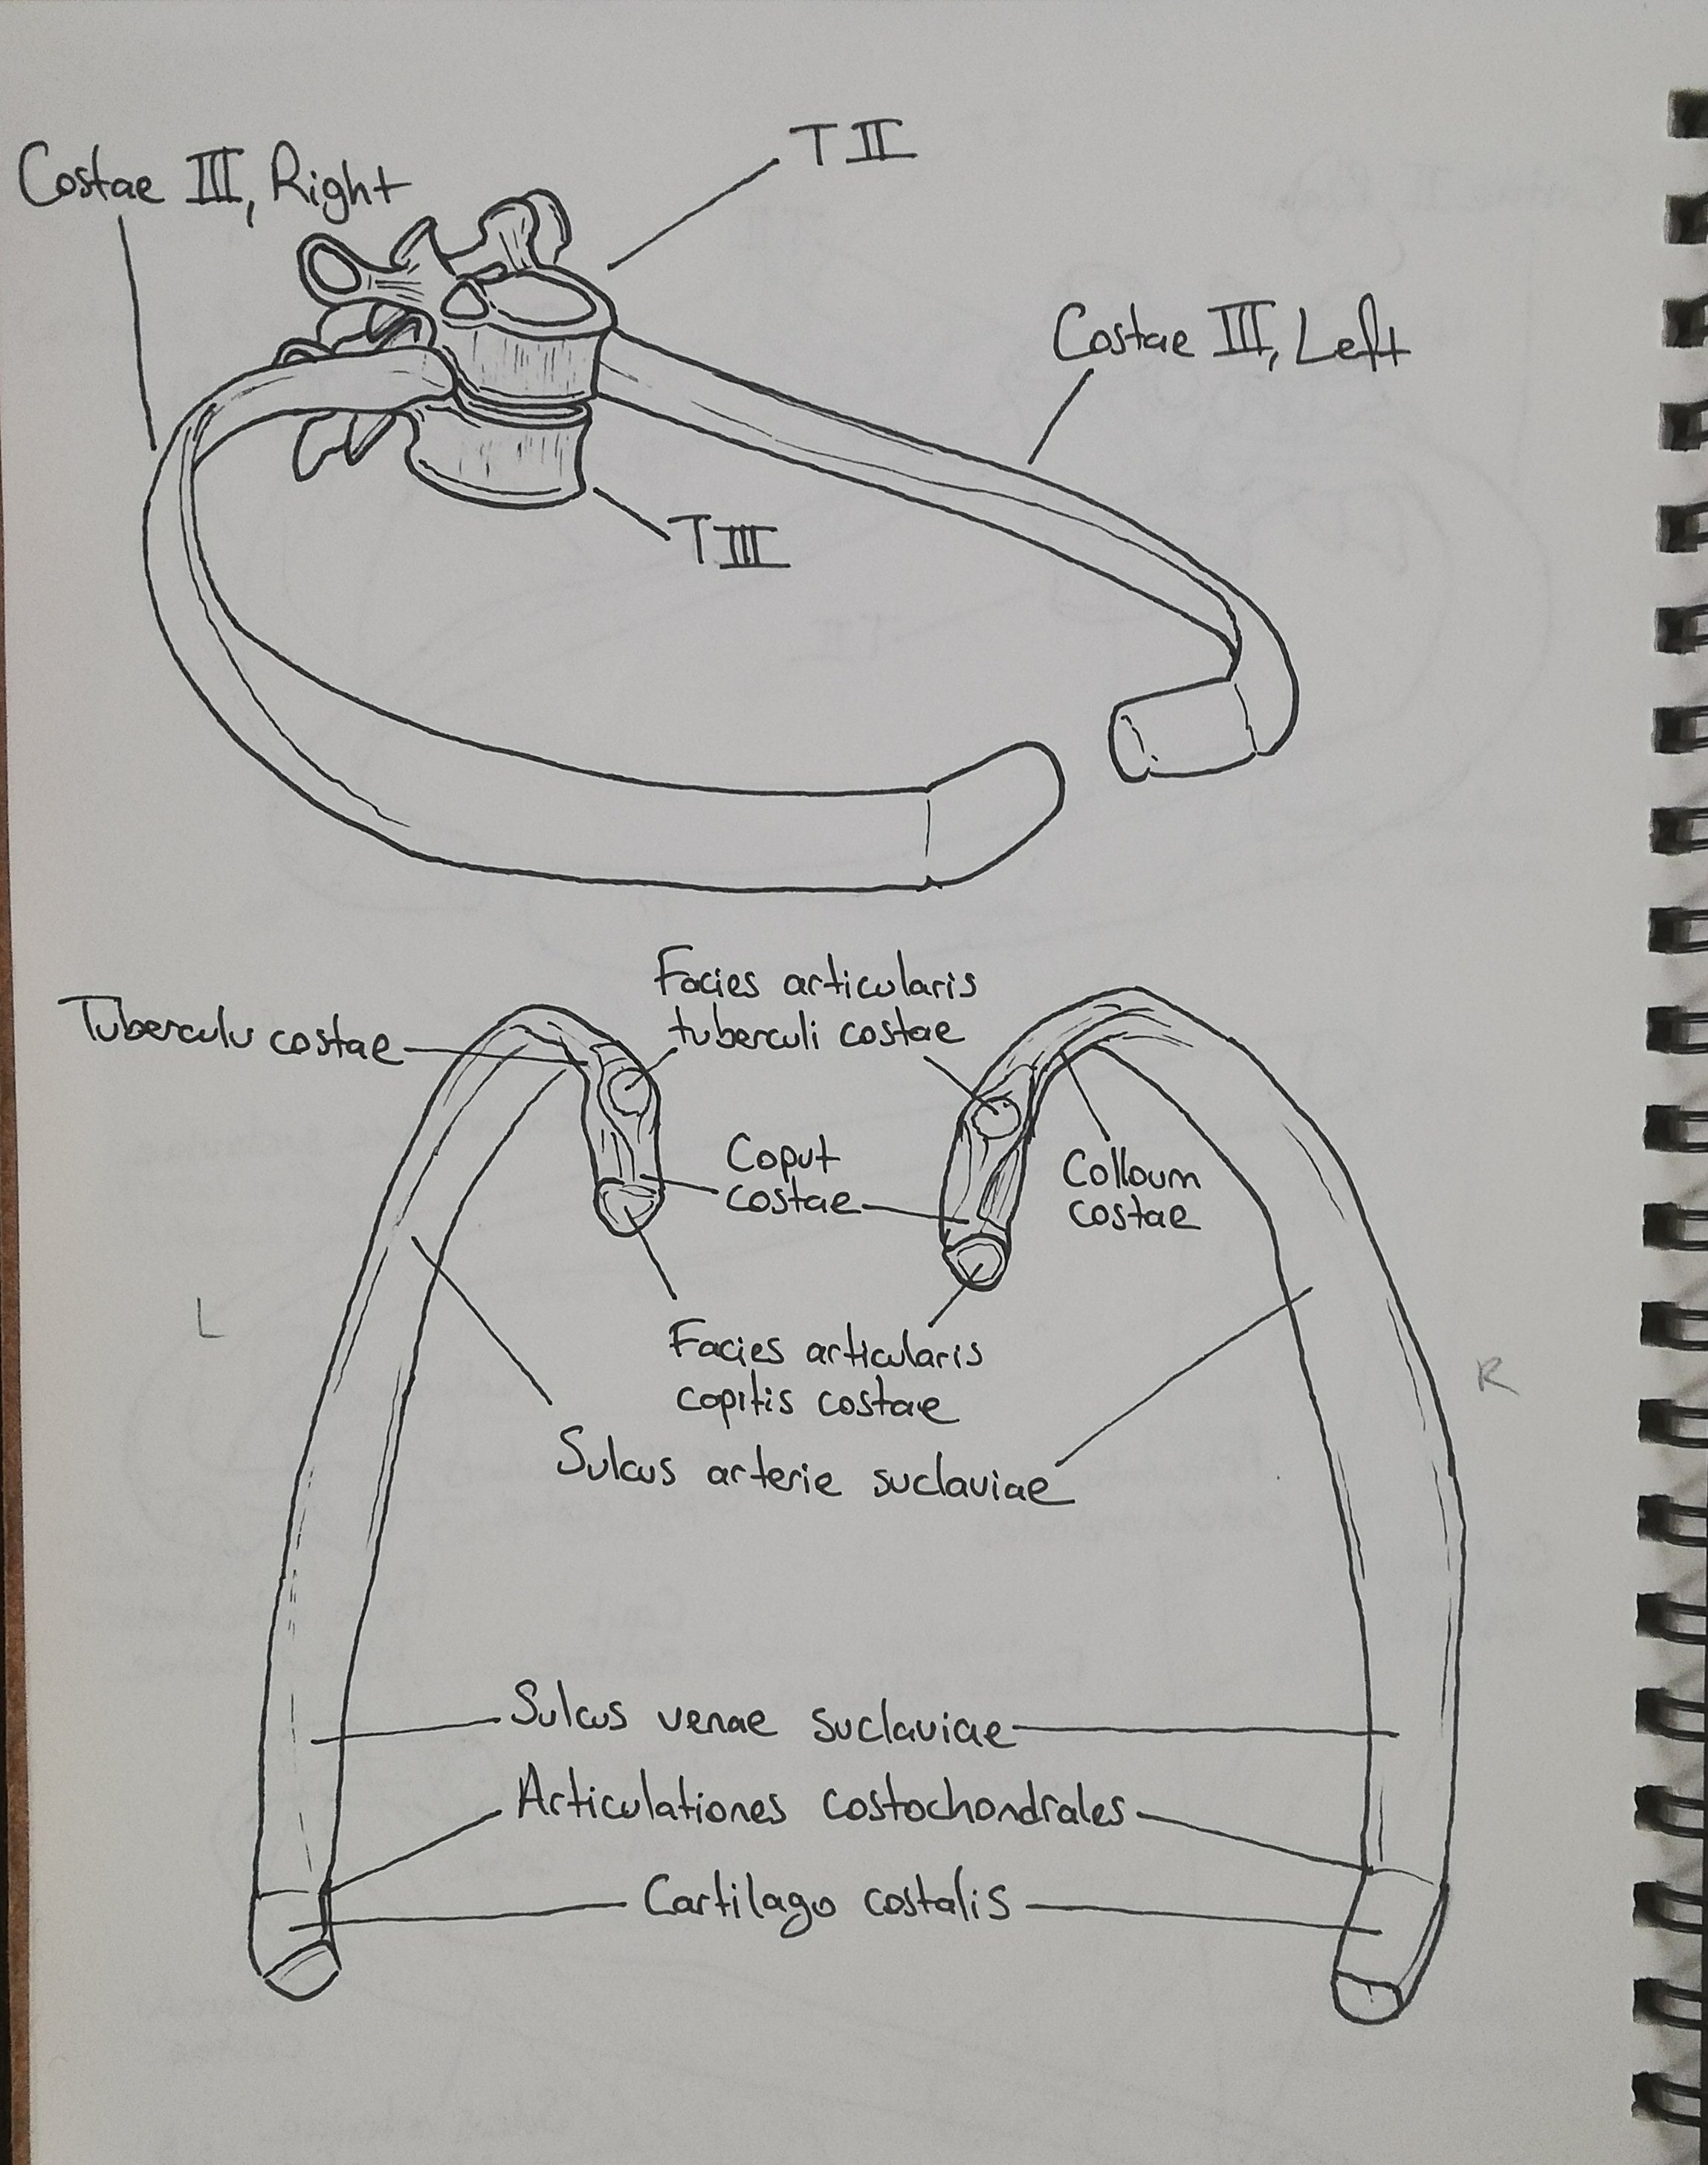 T II
Costae III, Right
Costae III, Left
T III
Facies articularis
tuberculi costae
Tuberculu costae
Coput
costae
Colloum
costae
L
Facies articularis
copitis costae
R
Sulcus arterie suclaviae
Sulcus venae suclaviae
Articulationes costochondrales
Cartilago costalis